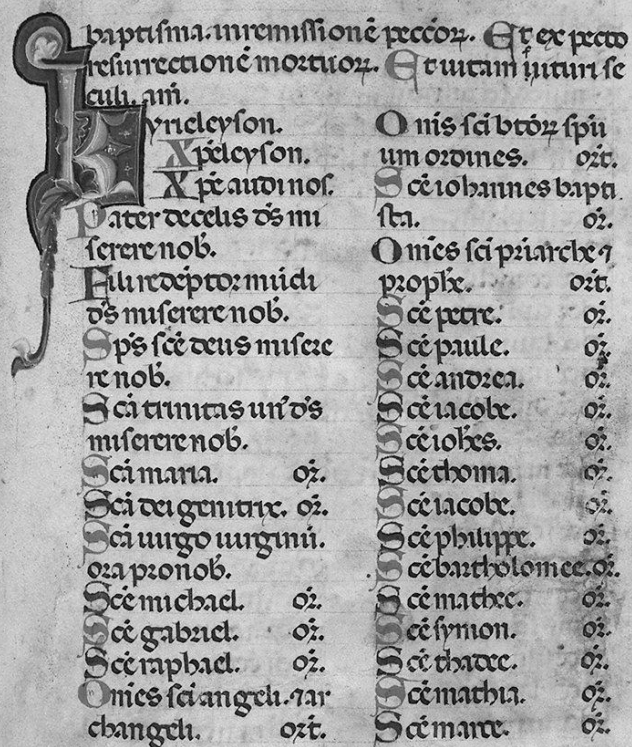 baptisma. in remissionē peccōꝝ. Et expecto
resurrectionē mortuoꝝ. Et uitam uituri se
culi. am̄.
Kyrieleyson.
Xp̄eleyson.
Xp̄e audi nos.
Pater de celis d̄s mi
serere nob̄.
Fili redēptor mūdi
d̄s miserere nob̄.
Sp̄s sc̄e deus misere
re nob̄.
Sc̄a trinitas un' d̄s
miserere nob̄.
Sc̄a maria. or̄.
Sc̄a dei genitrix. or̄.
Sc̄a uirgo uirginū.
ora pro nob̄.
Sc̄e michael. or̄.
Sc̄e gabriel. or̄.
Sc̄e raphael. or̄.
Om̄es sc̄i angeli. ⁊ ar
changeli. or̄t.
Om̄is sc̄i btōꝝ sp̄ii
um ordines. or̄t.
Sc̄e iohannes bapti
sta. or̄.
Om̄es sc̄i pr̄iarche ⁊
prophē. or̄t.
Sc̄e petre. or̄.
Sc̄e paule. or̄.
Sc̄e andrea. or̄.
Sc̄e iacobe. or̄.
Sc̄e ioh̄es. or̄.
Sc̄e thoma. or̄.
Sc̄e iacobe. or̄.
Sc̄e philippe. or̄.
Sc̄e bartholomee. or̄.
Sc̄e mathee. or̄.
Sc̄e symon. or̄.
Sc̄e thadee. or̄.
Sc̄e mathia. or̄.
Sc̄e marce. or̄.